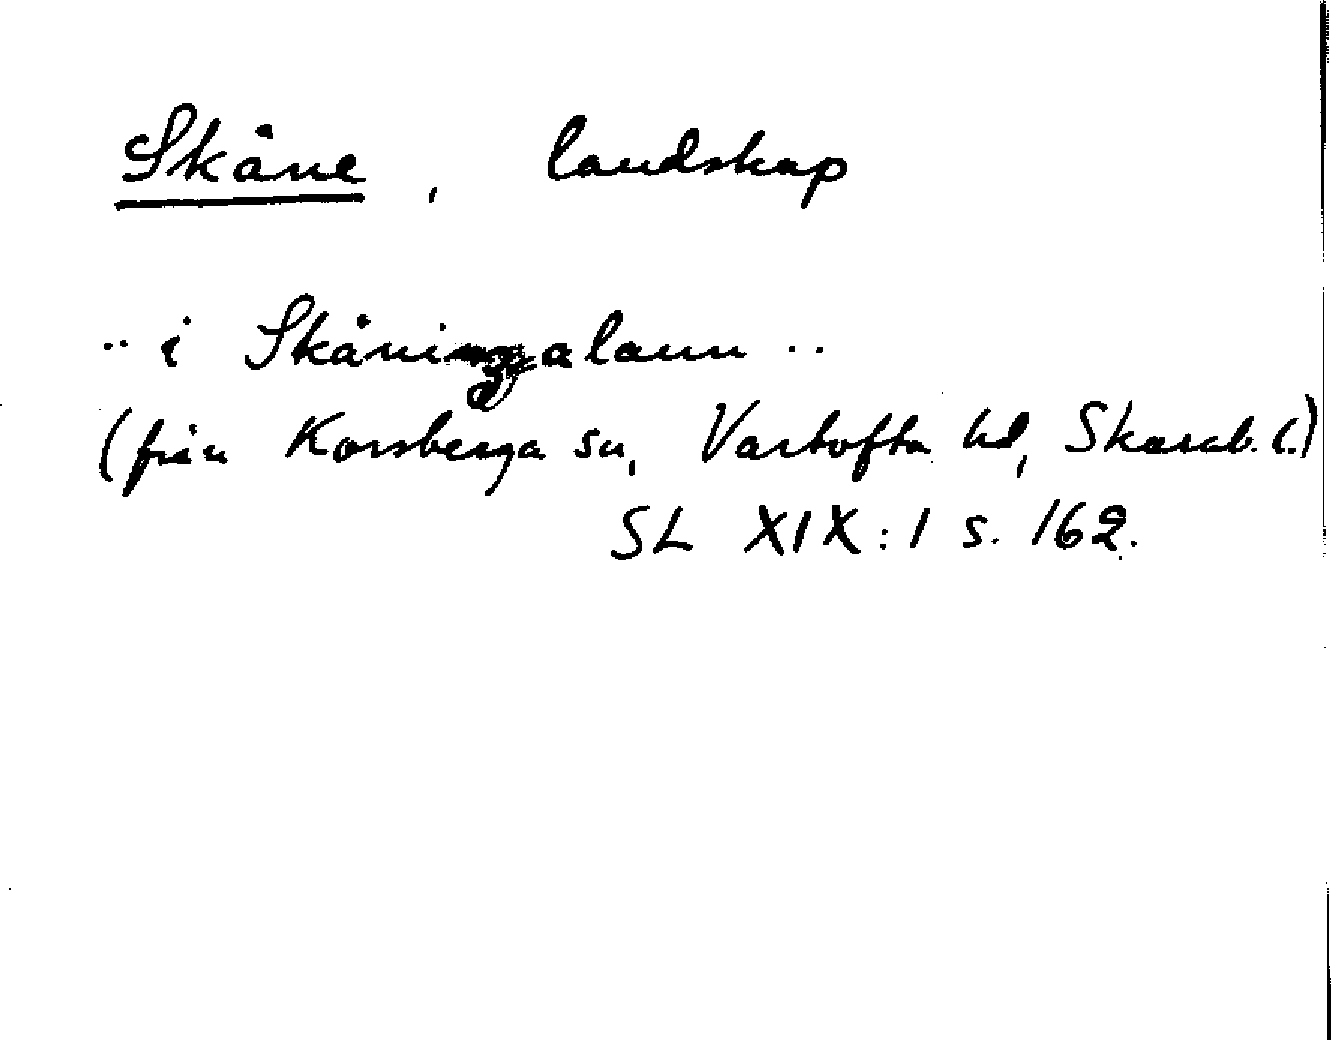 Skåne, landskap
.. i Skåningalaun ..
(från Korsberga sn, Vartofta hd, Skarab. l.)
SL XIX:1 s. 162.